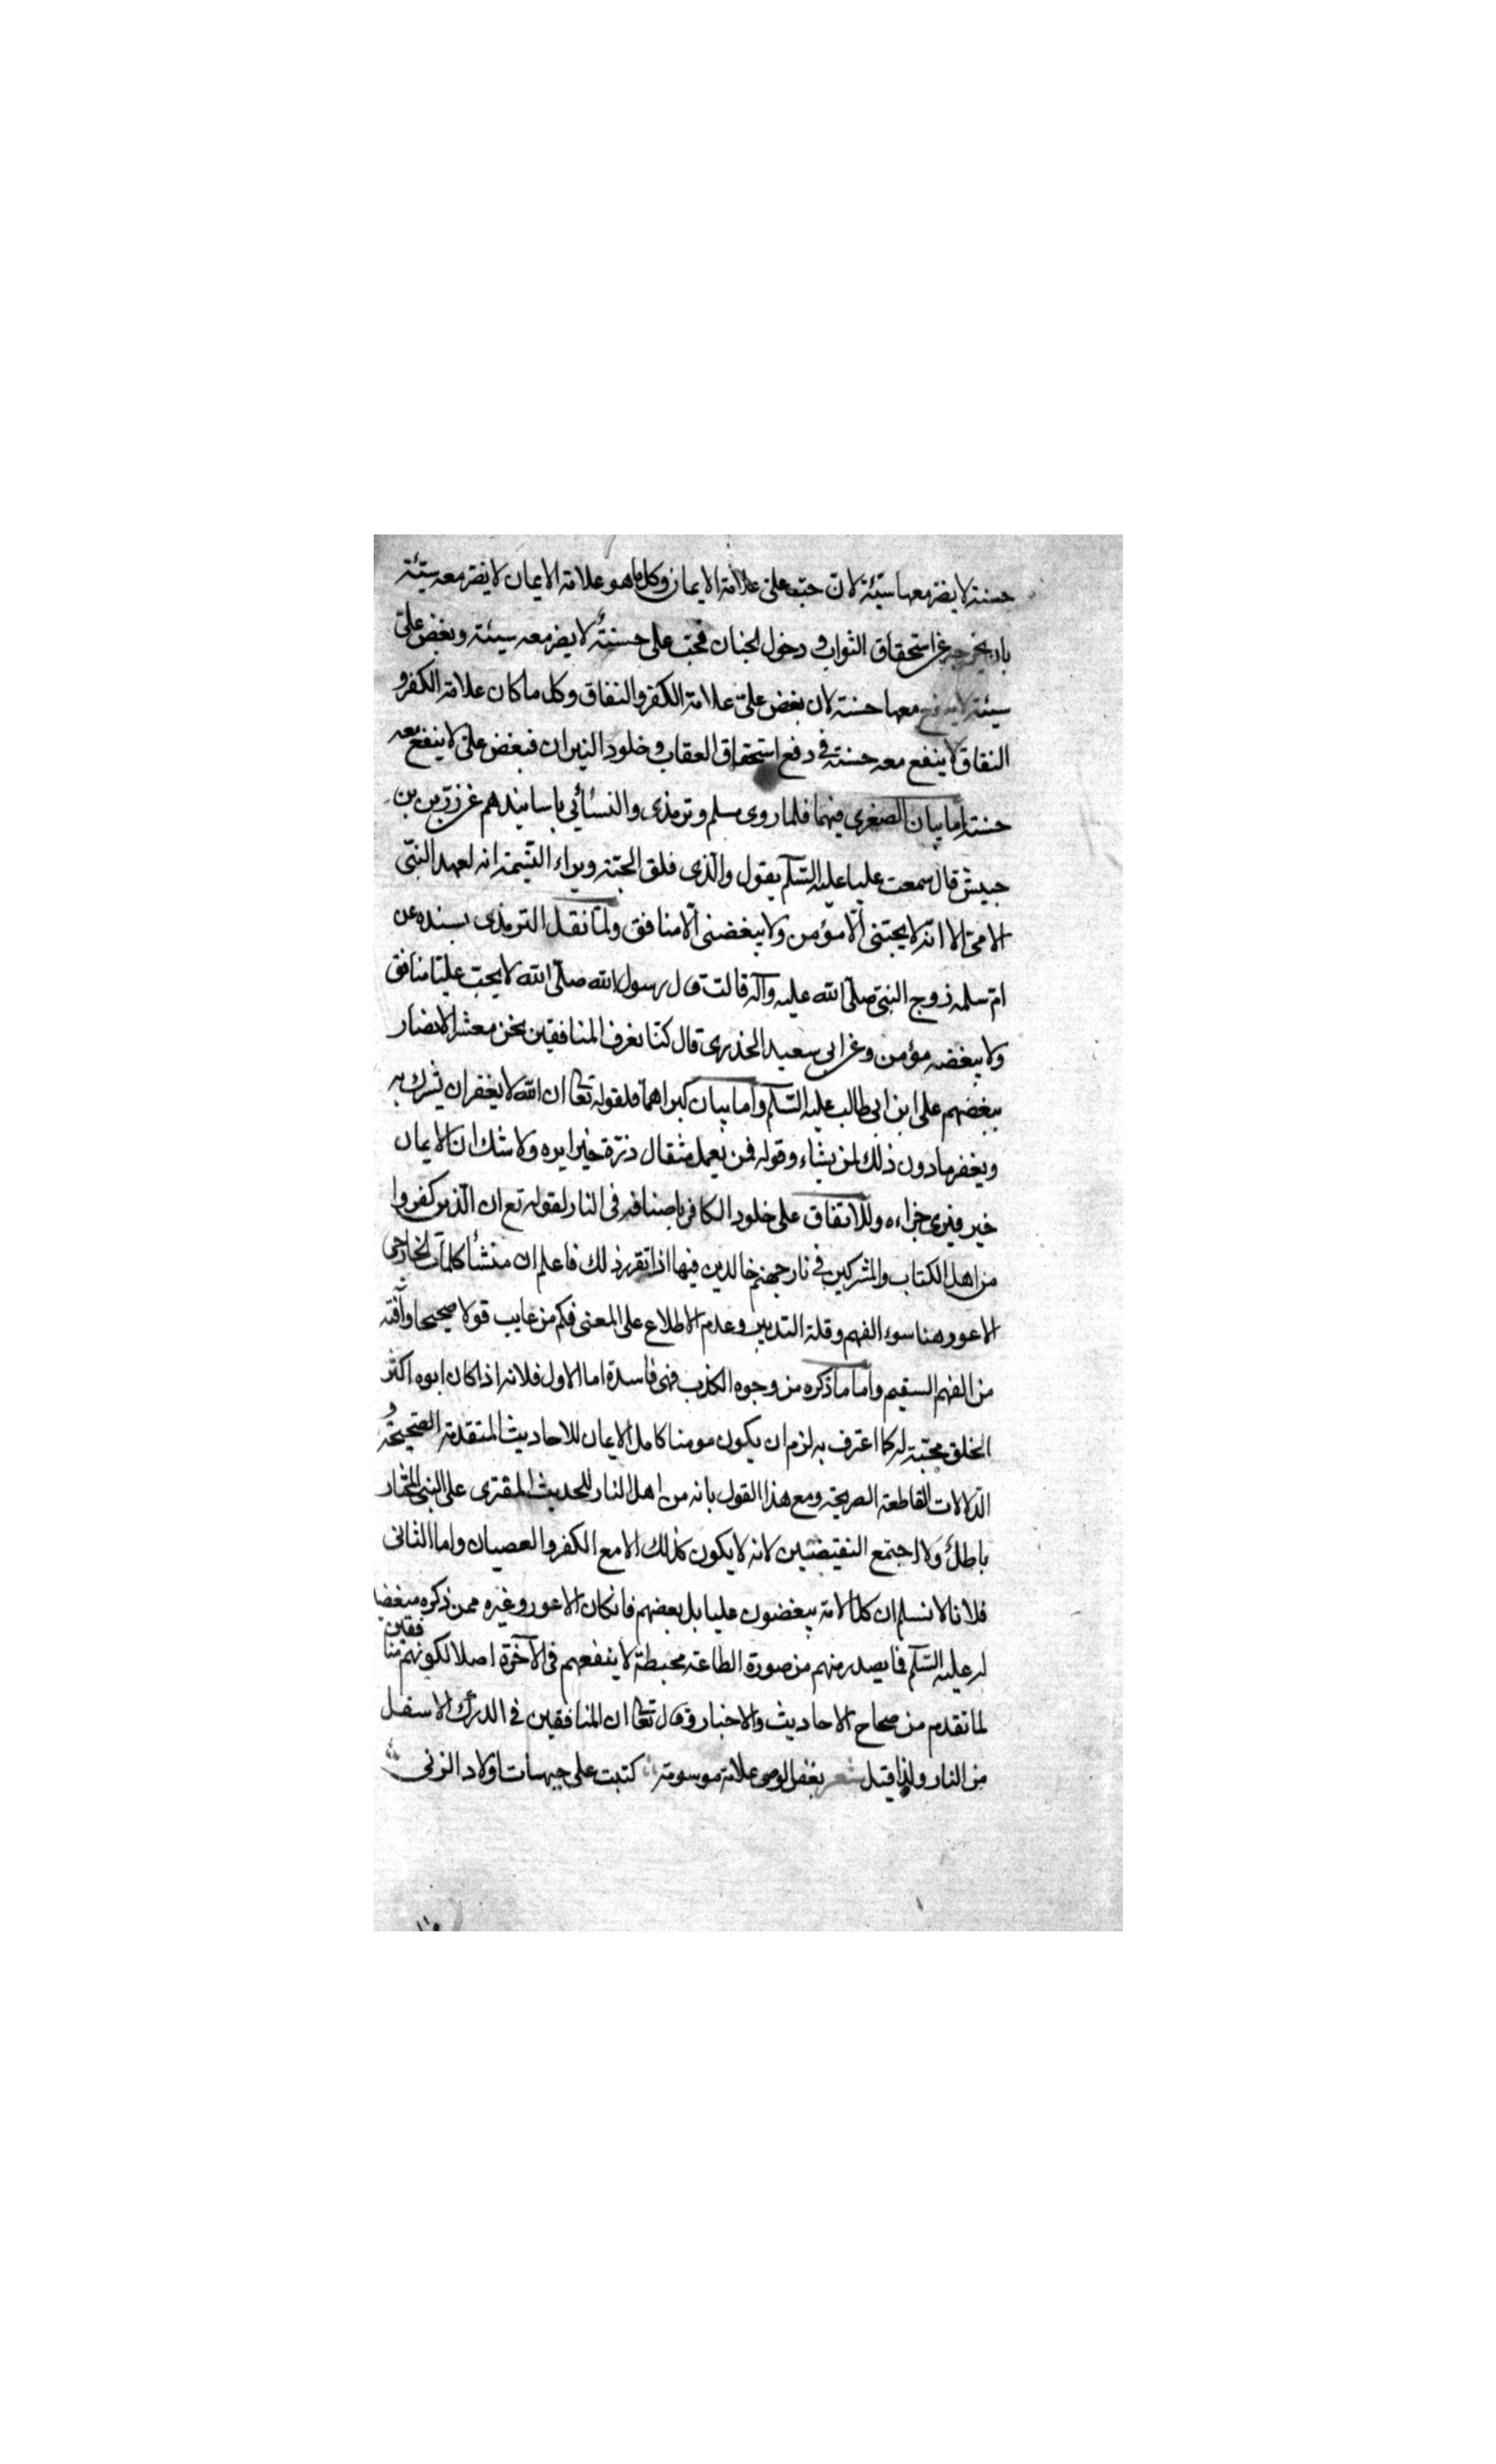 حسنة لا يضر معها سيئة لان حب علي علامة الايمان وكل ما هو علامة الايمان لا يضر معه سيئة
بان يخرجه عن استحقاق الثواب و دخول الجنان فحب علي حسنة لا يضر معه سيئة وبغض علي
سيئة لا ينفع معها حسنة لان بغض علي علامة الكفر والنفاق وكل ما كان علامة الكفر و
النفاق لا ينفع معه حسنة في دفع استحقاق العقاب وخلود النيران فبغض علي لا ينفع معه
حسنة اما بيان الصغرى فيهما فلما روى مسلم وترمذى والنسائي باسانيدهم عن زر بن بن
حبيش قال سمعت عليا عليه السلام يقول والذى فلق الحبة وبراء النسمة انه لعهد النبي
الامي الا انه لا يحبني الا مؤمن ولا يبغضني الا منافق ولما نقل الترمذى بسنده عن
ام سلمه زوج النبي صلى الله عليه وآله قالت قال رسول الله صلى الله لا يحب عليا منافق
ولا يبغضه مؤمن وعن ابي سعيد الخذرى قال كنا نعرف المنافقين نحن معشر الانصار
ببغضهم علي ابن ابي طالب عليه السلام واما بيان كبراهما فلقوله تعالى ان الله لا يغفر ان يشرك به
ويغفر ما دون ذلك لمن يشاء وقوله فمن يعمل مثقال ذرة خيرا يره ولا شك ان الايمان
خير فيرى جزاءه وللاتفاق على خلود الكافر باصنافه في النار لقوله تع ان الذين كفروا
من اهل الكتاب والمشركين في نار جهنم خالدين فيها اذا تقرر ذلك فاعلم ان منشأ كلمات الخارجي
الاعور هنا سوء الفهم وقلة التدبير وعدم الاطلاع على المعنى فكم من عايب قولا صحيحا وآفته
من الفهم السقيم واما ما ذكره من وجوه الكذب فهى فاسدة اما الاول فلانه اذا كان ابوه اكثر
الخلق محبة له كما اعترف به لزم ان يكون مومنا كامل الايمان للاحاديث المتقدمة الصحيحة و
الدلالات القاطعة الصريحة ومع هذا القول بانه من اهل النار للحديث المفترى على النبي المختار
باطل ولا اجتمع النقيضين لانه لا يكون كذلك الا مع الكفر والعصيان واما الثانى
فلانا لا نسلم ان كل الامة يبغضون عليا بل بعضهم فان كان الاعور وغيره ممن ذكره مبغضا
له عليه السلام فما يصدر منهم من صورة الطاعة محبطة لا ينفعهم في الآخرة اصلا لكونهم منافقين
لما تقدم من صحاح الاحاديث والاخبار وقال تعالى ان المنافقين في الدرك الاسفل
من النار ولذا قيل شعر بغض الوصي علامة موسومة كتبت على جبهات اولاد الزنى